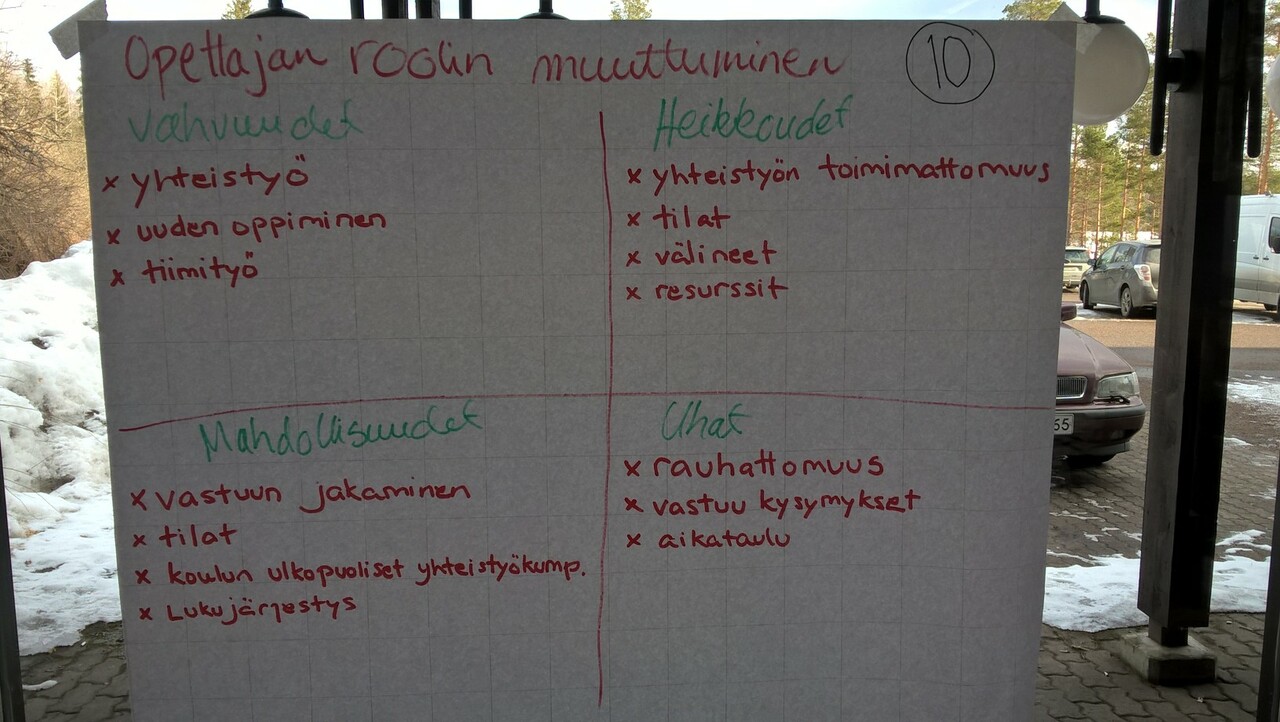 Opettajan roolin muuttuminen
10
Vahvuudet
x yhteistyö
x uuden oppiminen
x tiimityö
Heikkoudet
x yhteistyön toimimattomuus
x tilat
x välineet
x resurssit
Mahdollisuudet
x vastuun jakaminen
x tilat
x koulun ulkopuoliset yhteistyökump.
x Lukujärjestys
Uhat
x rauhattomuus
x vastuu kysymykset
x aikataulu